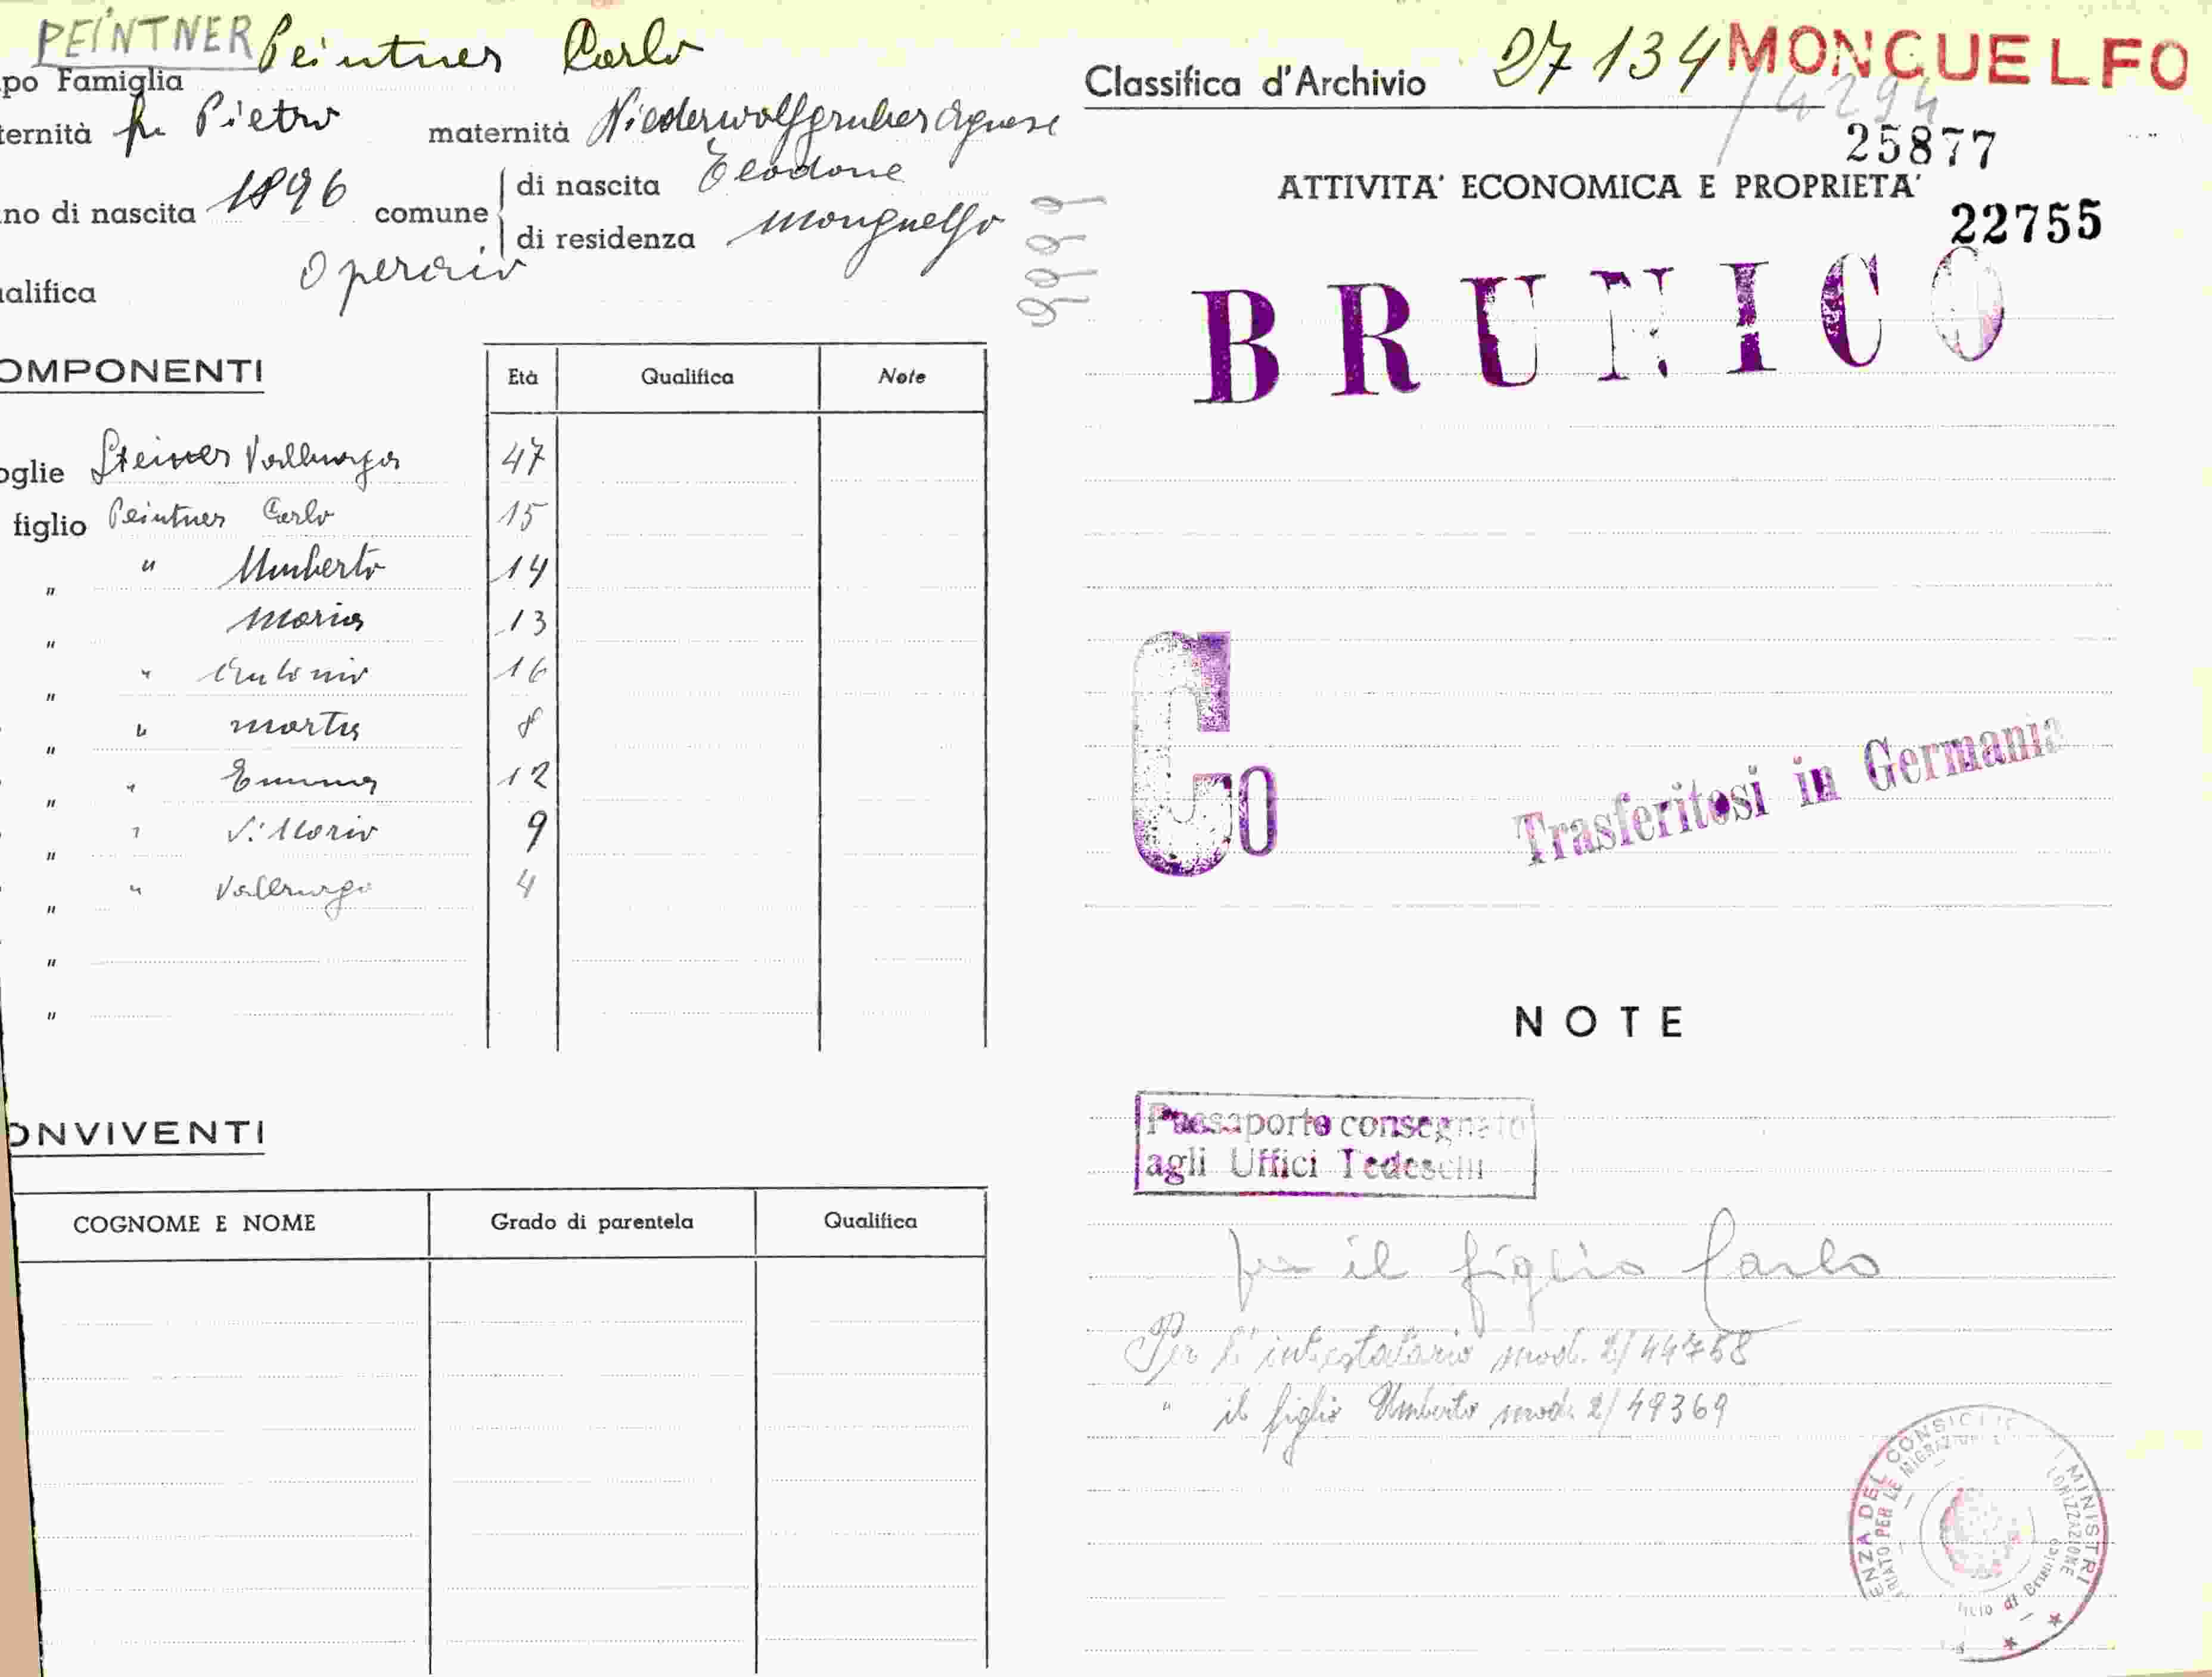 PEINTNER Peintner Carlo
po Famiglia
ternità fu Pietro maternità Niederwolfgruber Agnese
no di nascita 1896 comune di nascita Teodone
di residenza Monguelfo
alifica Operaio
OMPONENTI
Età Qualifica Note
oglie Steiner Vallburga 47
figlio Peintner Carlo 15
" " Umberto 14
" Maria 13
" " Antonio 16
" " Marta 8
" " Emma 12
" " V. Mario 9
" " Vallburga 4
"
"
ONVIVENTI
COGNOME E NOME Grado di parentela Qualifica
9999
Classifica d'Archivio 27134 MONGUELFO
14294
25877
ATTIVITA' ECONOMICA E PROPRIETA'
22755
BRUNICO
Go
Trasferitosi in Germania
NOTE
Passaporto consegnato
agli Uffici Tedeschi
per il figlio Carlo
Per l'intestatario mod. 2/44758
" il figlio Umberto mod. 2/49369
ENZA DEL CONSIGLIO MINISTRI
ARIATO PER LE MIGRAZIONI
di Brunico